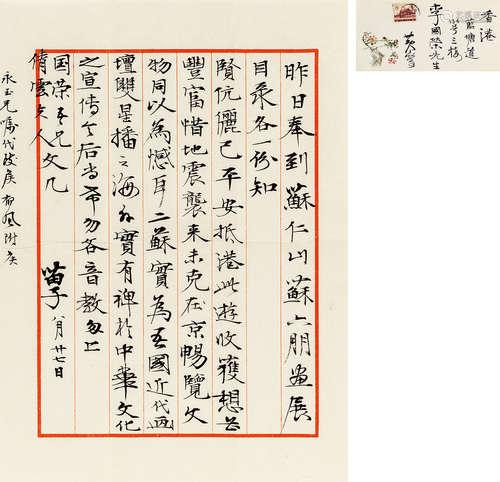 昨日奉到蘇仁山蘇六朋畫展
目录各一份知
賢伉儷已平安抵港此遊收獲想必
豐富惜地震襲来未克在京暢覽文
物同以為憾耳二蘇實為吾國近代画
壇雙星播之海外實有裨於中華文化
之宣传今后尚希勿吝音教匆上
国荣吾兄
倩雲夫人文几
苗子
八月廿七日
永玉兄嘱代致候 郁風附候
香港
藍塘道
號三樓
李國榮先生
黄寄